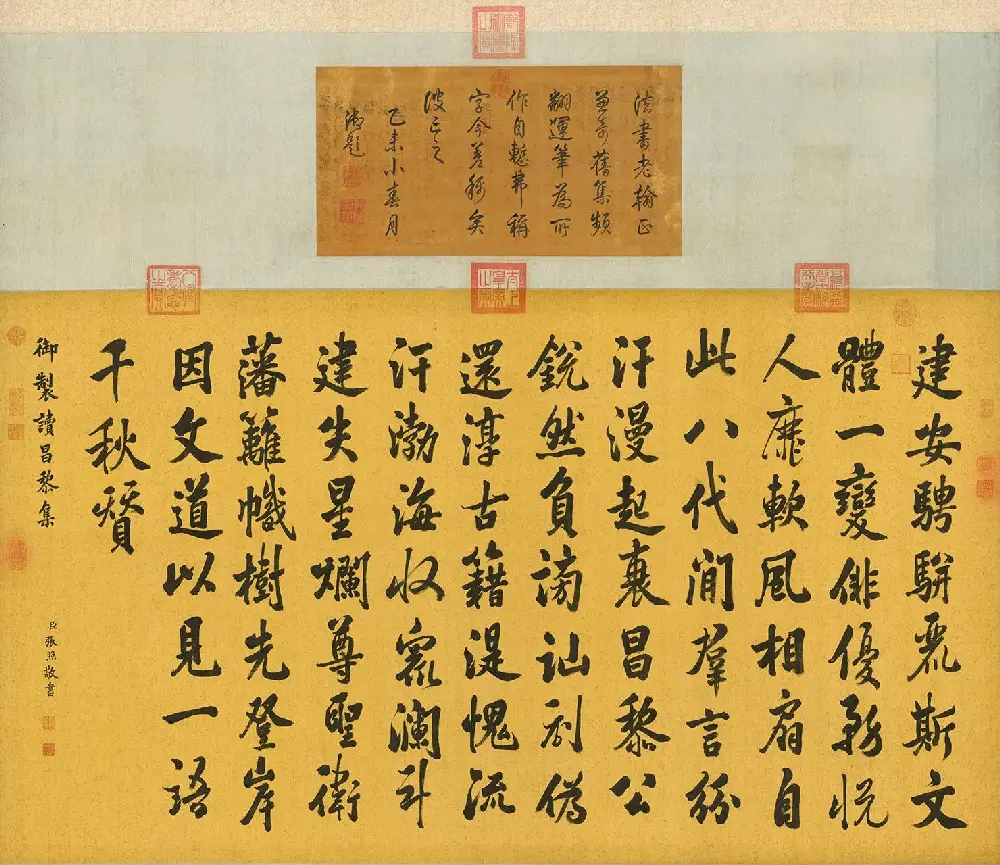 法書老翰
舊集頻
翻運筆為所
作自慙弗稱
字今差
彼亡之
乙未小春月
御題
建安騁駢麗斯文
體一變俳優務悅
人靡軟風相扇自
此八代間羣言紛
汗漫起衰昌黎公
銳然負謗訕剗偽
還淳古籍湜愧流
汗渤海收眾瀾斗
建失星爛尊聖衛
藩籬幟樹先登岸
因文道以見一語
千秋贊
御製讀昌黎集
臣張照敬書